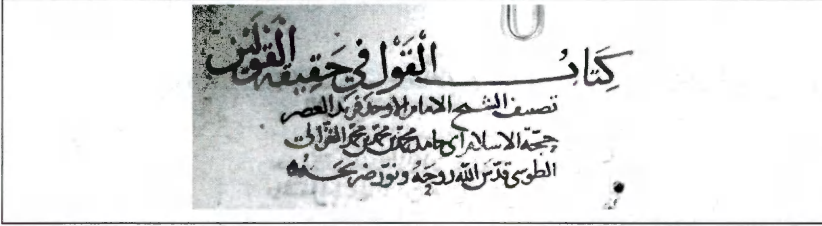 كِتَابُ الْقَوْلِ فِي حَقِيقَةِ الْقَوْلَيْنِ
تصنيف الشيخ الامام الاوحد فريد العصر
حجة الاسلام ابى حامد محمد بن محمد بن محمد الغزالى
الطوسى قدّس الله روحه ونوّر ضريحه